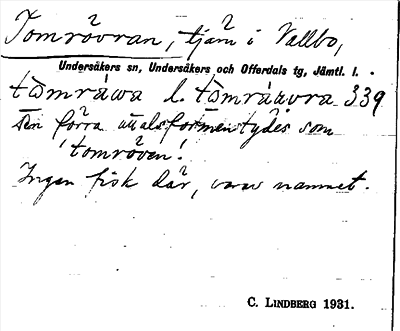 Tomrövran, tjärn i Vallbo,
Undersåkers sn, Undersåkers och Offerdals tg, Jämtl. l.
tòmråwa l. tòmråavra 339
den förra uttalsformen tydes som
'tomröven'.
Ingen fisk där, varav namnet.
C. LINDBERG 1931.